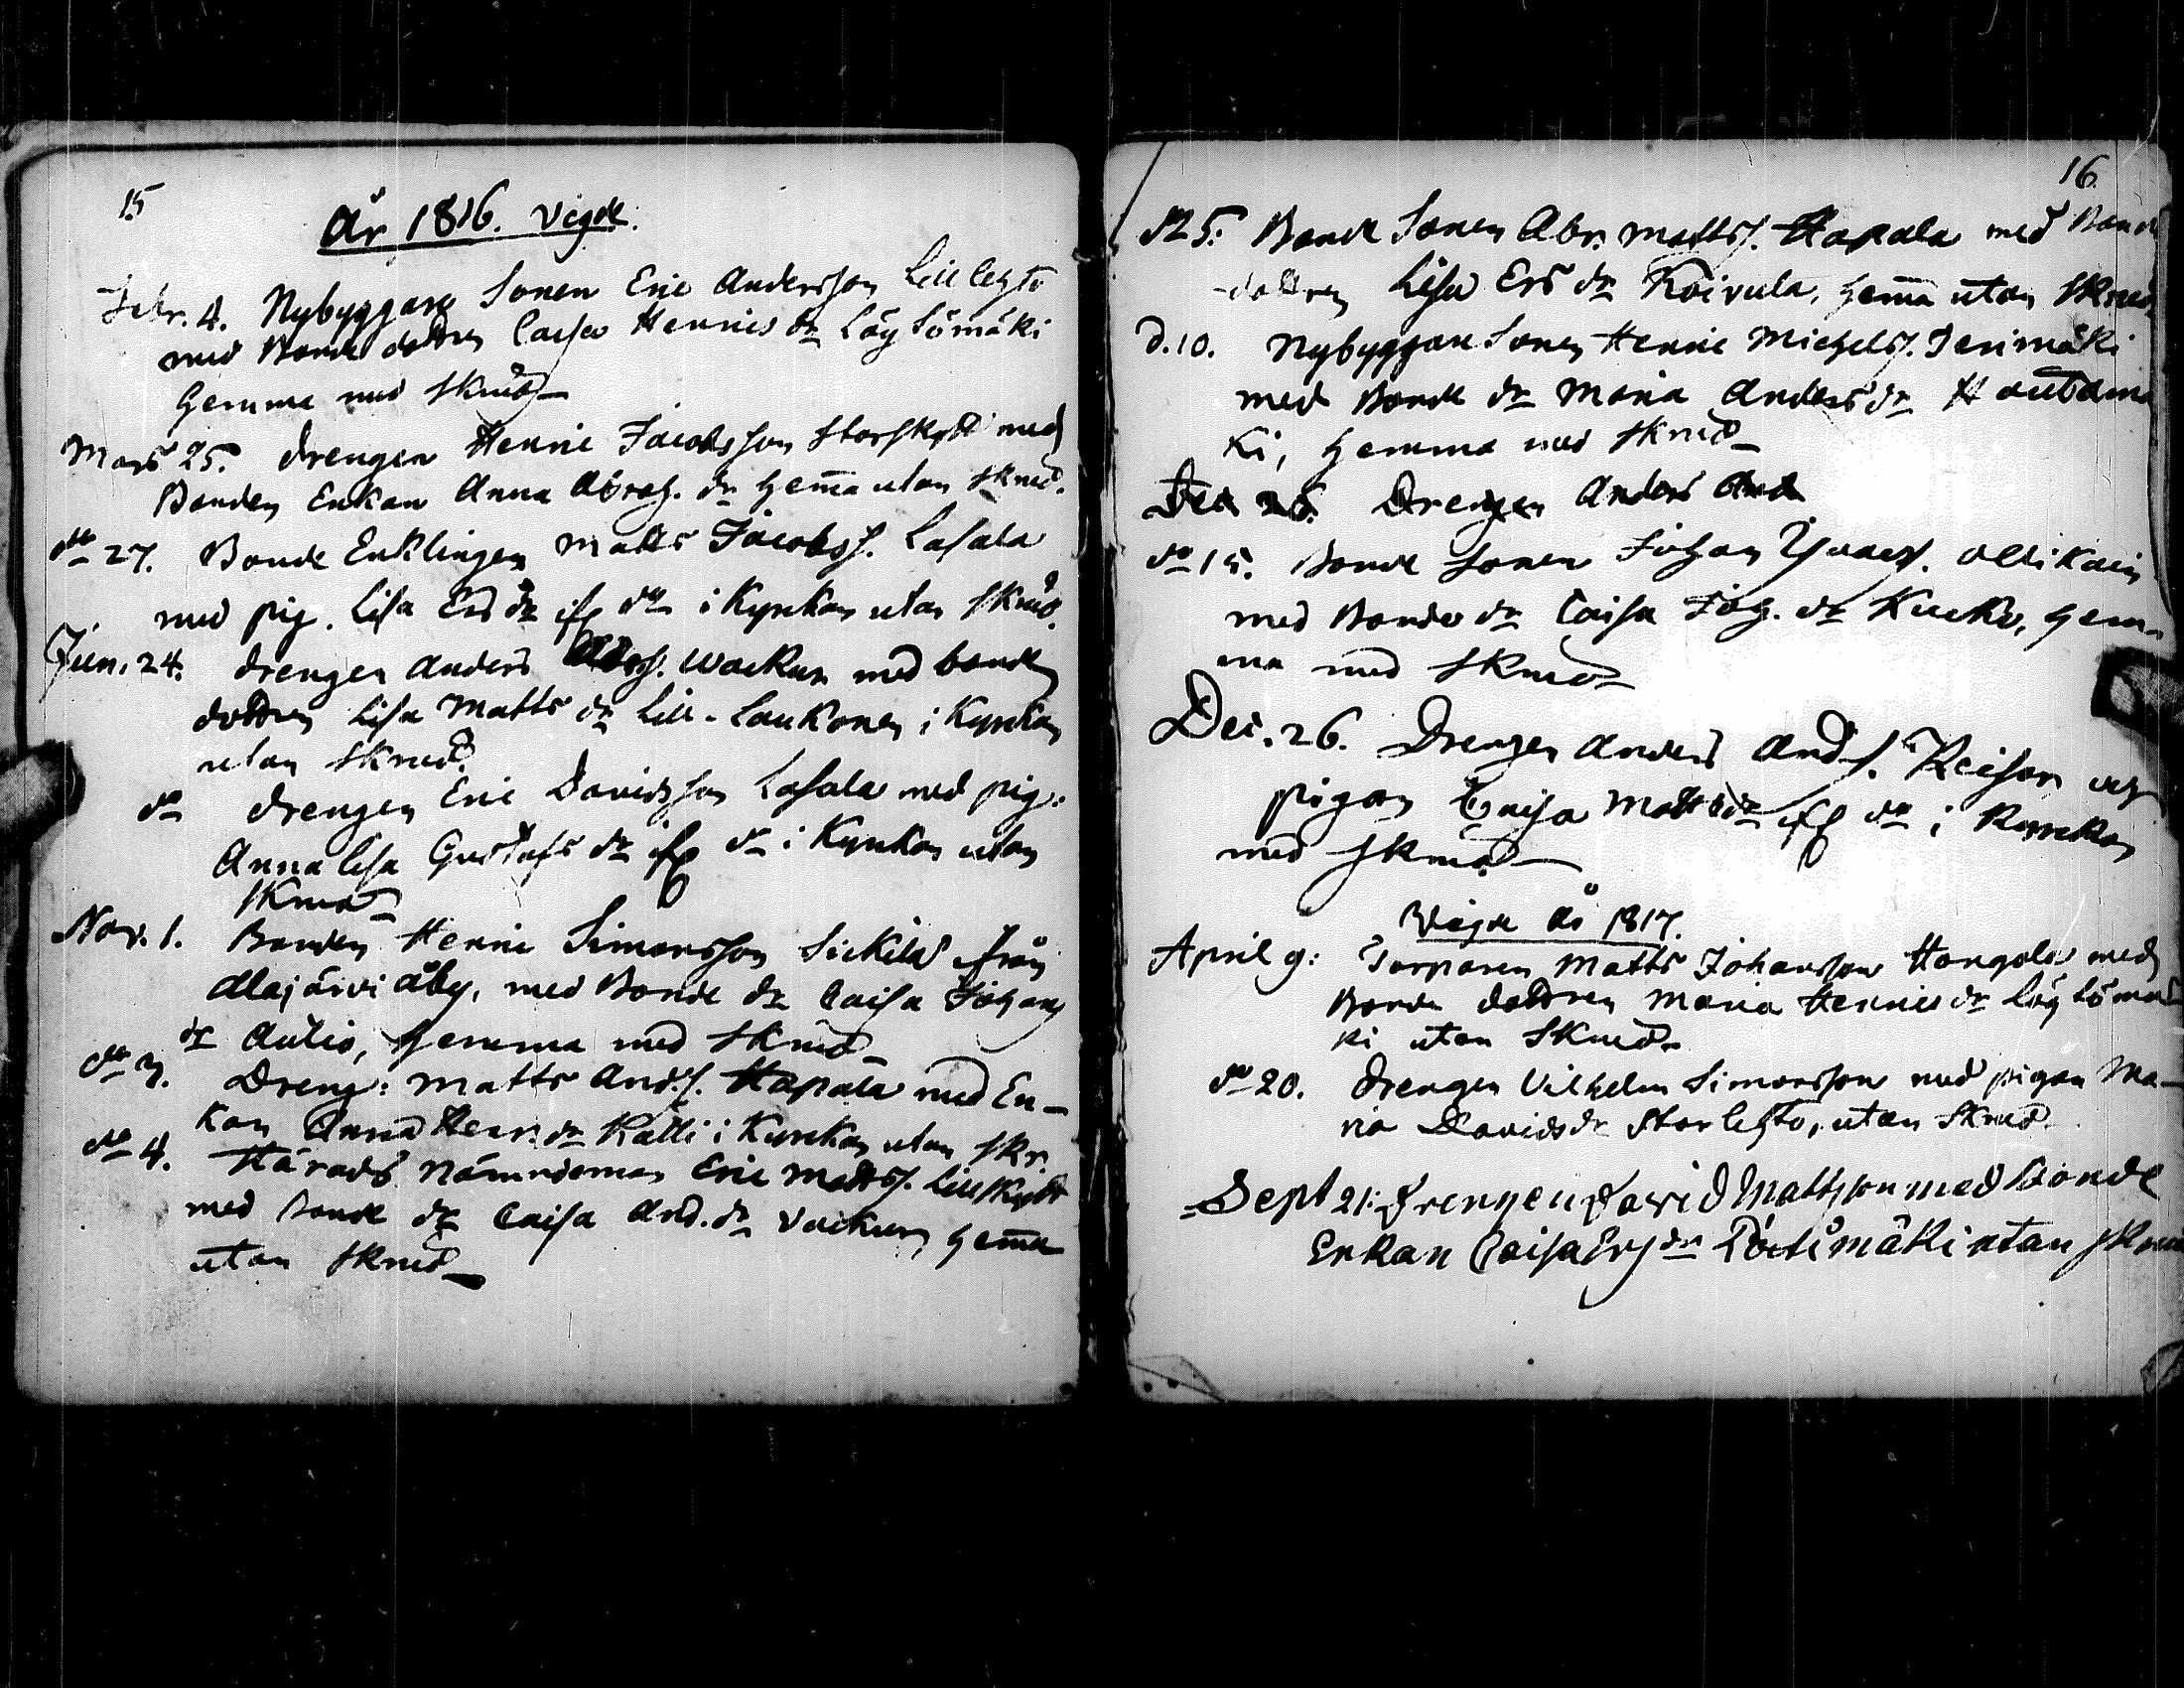 15
År 1816. Vigde.
Febr. 4. Nybyggare Sonen Eric Andersson Lill lehto
med Bonde dottren Caisa Henrics dr Löytömäki
hemma med skrud
Mars 25. drengen Henric Jacobsson Storskytt med
Bonden Enkan Anna Abrah. dr hem̄a utan skrud.
do 27. Bonde Enklingen Matts Jacobss. Lasala
med pig. Lisa Ers dr ifr do i Kyrkan utan skrud.
Jun. 24. drengen Anders Abrs. Wackur med bonde
dottren Lisa Matts dr Lill-Laukonen i Kyrkan
utan skrud.
do drengen Eric Davidsson Lasala med pig:
Anna Lisa Gustafs dr ifr do i Kyrkan utan
skrud
Nov. 1. Bonden Henric Simonsson Sickila från
Alajärvi åby, med Bonde dr Caisa Johans
dr Aulio, hemma med skrud
do 3. Dreng: Matts And.s. Hapala med En-
kan Anna Henr. dr Kalli i Kyrkan utan skr.
do 4. Härads Nämndeman Eric Mattss. Lillskytt
med Bonde dr Caisa And. dr Vackur, hem̄a
utan skrud
16.
d 25. Bonde Sonen Abr. Mattss. Hapala med Bonde
dottren Lisa Ers dr Koivula, hem̄a utan skrud.
d. 10. Nybyggare Sonen Henric Michelss. Jerimäki
med Bonde dr Maria Anders dr Hautamä
ki, hemma med skrud
Dec 26. Drengen Anders And
do 15. Bonde Sonen Johan Isaacs. Ollikain
med Bonde dr Caisa Joh. dr Kucko, hem-
ma med skrud
Dec. 26. Drengen Anders And.s. Keisar och
pigan Caisa Matts dr ifr do i Kyrkan
med skrud
Vigde År 1817.
April 9: Torparen Matts Johansson Hangola med
Bonde dottren Maria Henrics dr Löytömä
ki utan skrud
do 20. Drengen Vilhelm Simonsson med pigan Ma-
ria Davids dr Storlehto, utan skrud
Sept 21: Drengen David Mattsson med Bonde
Enkan Caisa Ers dr Pöntimäki utan skrud